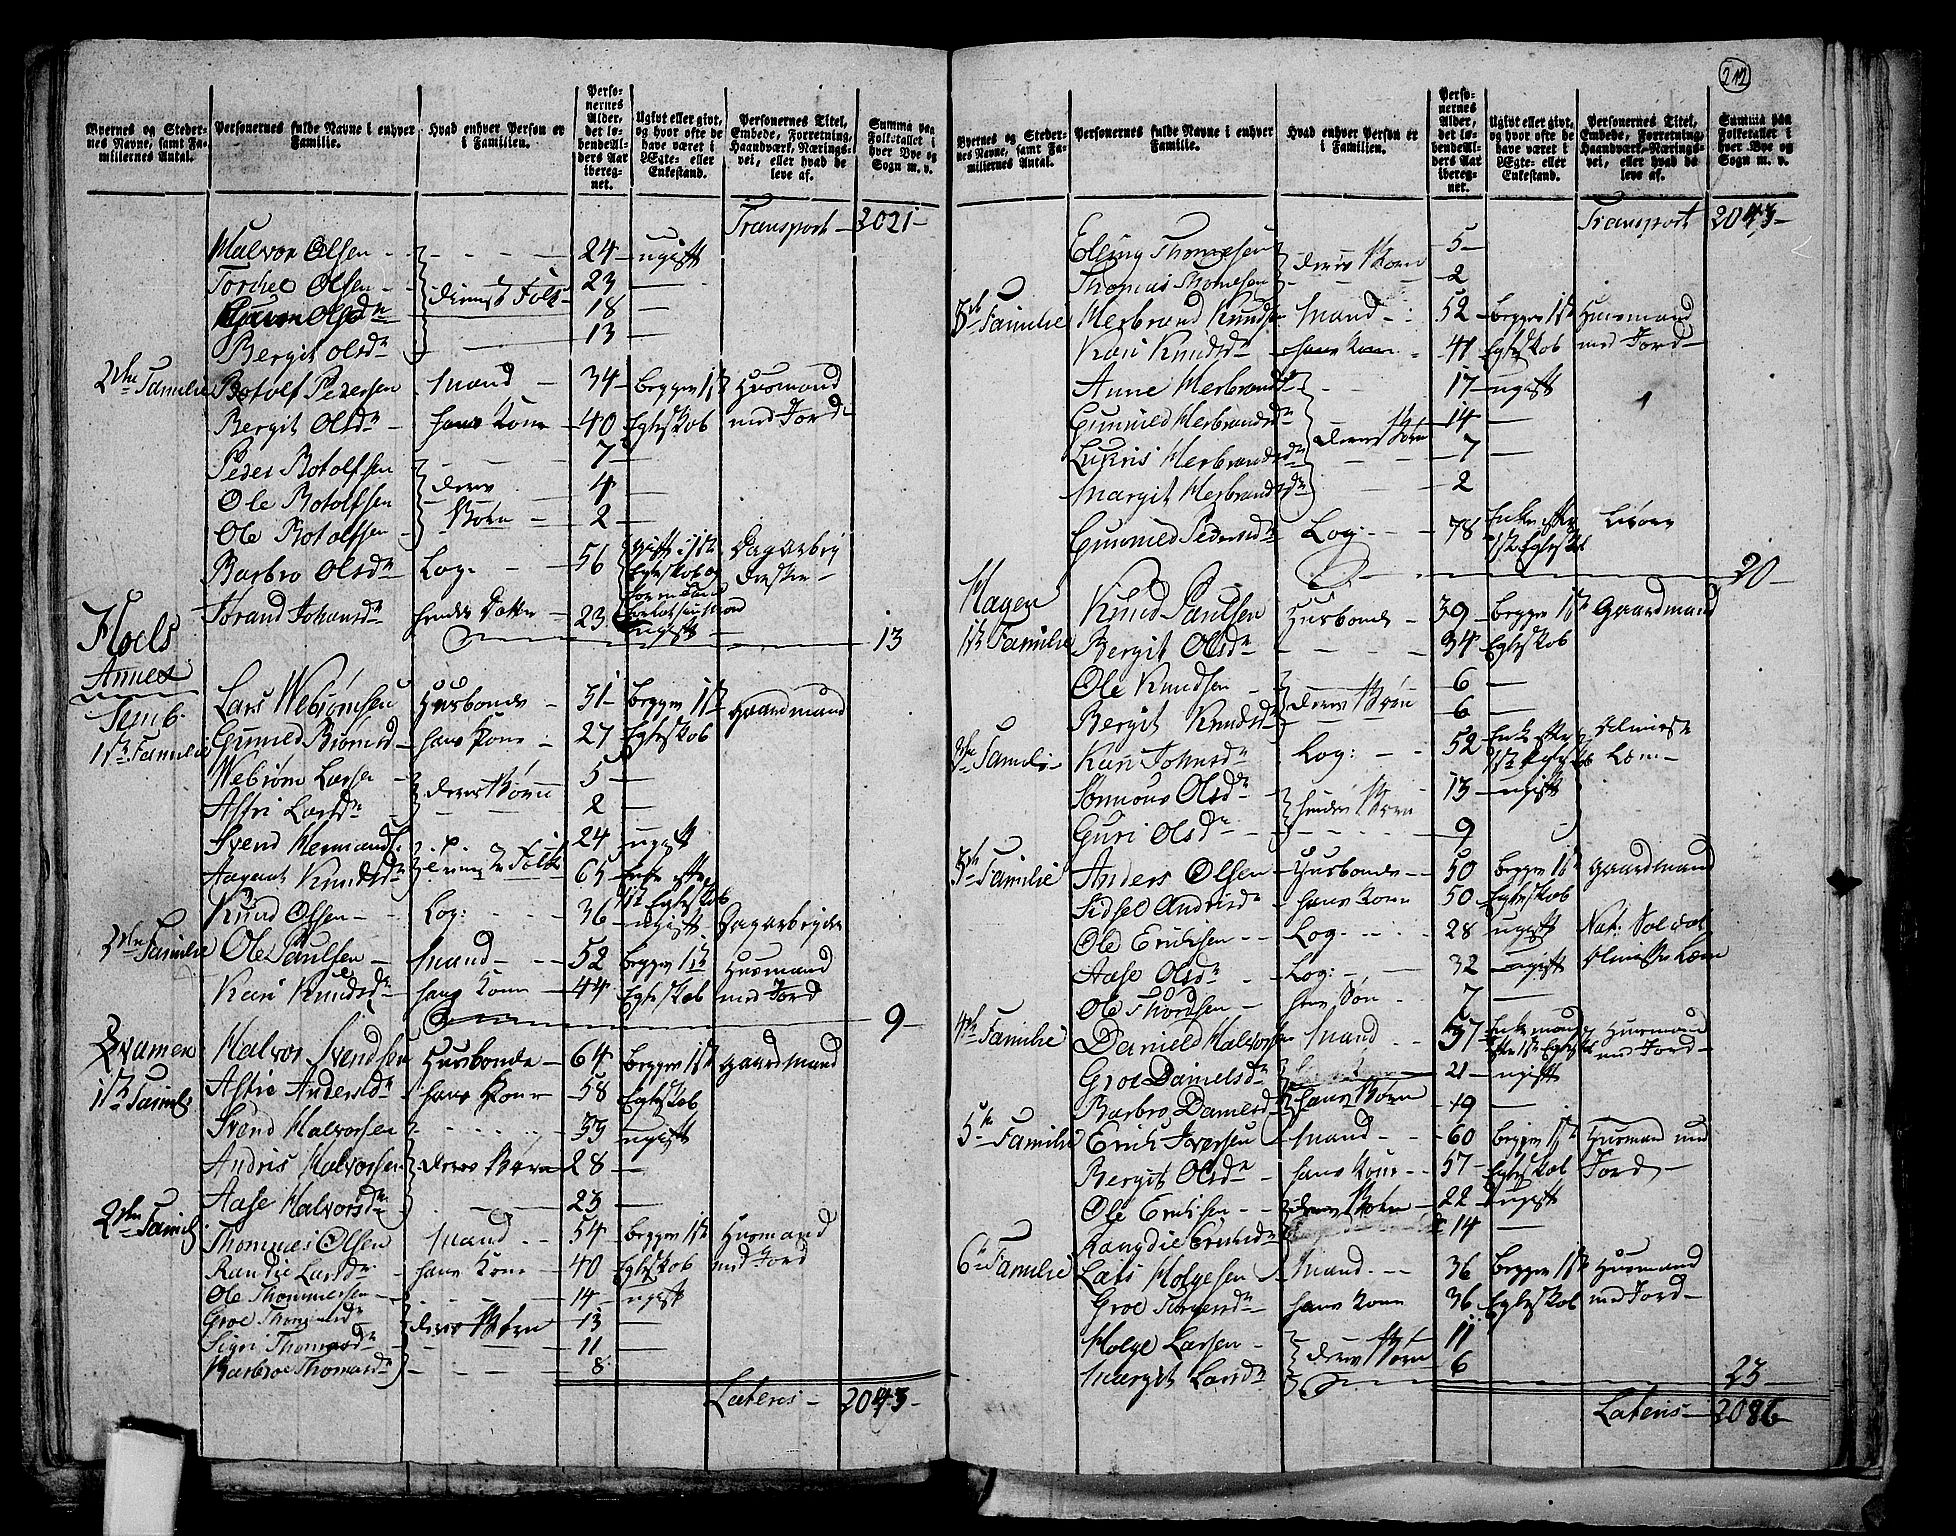 Byernes og Stedernes Navne, samt Familiernes Antal. | Personernes fulde Navne i enhver Familie. | Hvad enhver Person er i Familien. | Personernes Alder, det løbende Alders Aar iberegnet. | Ugivt eller givt, og hvor ofte de have været i Ægte- eller Enkestand. | Personernes Titel, Embede, Forretning, Haandværk, Næringsvei, eller hvad de leve af. | Summa paa Folketallet i hver Bye og Sogn m. v.
Transport – 2021 –
Halvor Olsen - 24 – ugift
Torchel Olsen - 23 –
Olsdr tienst Folk 18 –
Bergit Olsdr 13 –
2den Familie Botolf Pedersen Mand – 34 – begge i 1ste Husmand
Bergit Olsdr – hans Kone – 40 Egteskob med Jord –
Peder Botolfsen 7 –
Ole Botolfsen deres 4 –
Ole Botolfsen Børn – 2 –
Barbro Olsdr Log: – 56 gift i 1ste Egteskob og
Torand Johansdr hendes Datter 23 ugift – 13
Floels
Annex
Semb.
1ste Familie
Lars Webiørnsen Husbonde – 31 – begge i 1ste Gaardmand
Gunild Biørnsd – hans Kone – 27 Egteskob
Webiørn Larsen – 5 –
Astri Larsdr deres Børn 2 –
Svend Hermands. 24 ugift
Aagaat Knudsdr tieneste Folk 65 Enke efter 1ste Egteskob
Knud Olsen – Log: 36 – ugift Dagarbeyder
2den Familie Ole Paulsen – Mand – 52 begge i 1ste Husmand
Kari Knudsdr – hans Kone – 44 Egteskob med Jord
9 –
Qvamen Halvor Svendsen Husbonde – 64 begge i 1ste Gaardmand
1ste Famile Astrie Andersdr hans Kone – 58 Egteskob
Svend Halvorsen 33 ugift
Andris Halvorsen deres Børn 28 –
Aase Halvorsdr 23 –
2den Famil: Thommes Olsen Mand – 54 begge i 1ste Husmand
Randie Larsdr – hans Kone – 40 Egteskob med Jord
Ole Thommessen – 14 – ugift
Groe Thomesdr deres Børn – 13 –
Sigri Thomasdr – 11 –
Barbroe Thomasdr 8
Lateris – 2043 –
212
Byernes og Stedernes Navne, samt Familiernes Antal. | Personernes fulde Navne i enhver Familie. | Hvad enhver Person er i Familien. | Personernes Alder, det løbende Alders Aar iberegnet. | Ugivt eller givt, og hvor ofte de have været i Ægte- eller Enkestand. | Personernes Titel, Embede, Forretning, Haandværk, Næringsvei, eller hvad de leve af. | Summa paa Folketallet i hver Bye og Sogn m. v.
Transport 2043 –
Elling Thomesen 5 –
Thomas Thomesen deres Børn 2
3die Familie Herbrand Knudsen Mand – 52 – begge i 1ste Husmand
Kari Knudsdr – hans Kone – 41 Egteskob med Jord –
Anne Herbrandsdr 17 – ugift
Gunnild Herbrandsdr 14 –
Herbrandsdr deres Børn 7 –
Margit Herbrandsdr 2
Gunnild Pedersdr Log: 78 Enke efter 1ste Egteskob
20 –
Hagen
1ste Familie Knud Paulsen Husbonde – 39 – begge i 1ste Gaardmand
Bergit Olsdr 34 Egteskob
Ole Knudsen – 6 –
Bergit Knudsdr deres Børn 6 –
2den Famili – Kari Johnsdr Log: – 52 Enke efter 1ste Egteskob
Olsdr – 13 – ugift
Guri Olsdr hendes Børn 9
3die Familie Anders Olsen – Husbonde – 50 begge i 1ste Gaardmand
Sidsel Andrisdr – hans Kone 50 Egteskob
Ole Eriksen – – Log – 28 – ugift Nat: Soldat
Aase Olsdr – Log: – 32 – ugift
Ole Thordsen – Søn – 7 –
4de Familie Danield Halvorsen Mand – 57 Enkemand efter 1ste Egteskob Husmand med Jord –
Groe Danielsdr 21 – ugift
Barbro Danielsdr hans Børn 19 –
5te Familie Erich Iversen Mand – 60 begge i 1ste Husmand med
Bergit Olsdr – hans Kone – 57 – Egteskob Jord –
Ole Eriksen – – deres Børn – 22 – ugift
Rangdie Eriksdr 14 –
6te Familie Lars Holgesen Mand – 36 begge i 1ste Husmand
Groe hans Kone 36 Egteskob med Jord –
Holge Larsen – 11
Margit Larsdr deres Børn 6
23 –
Lateris – 2086 –